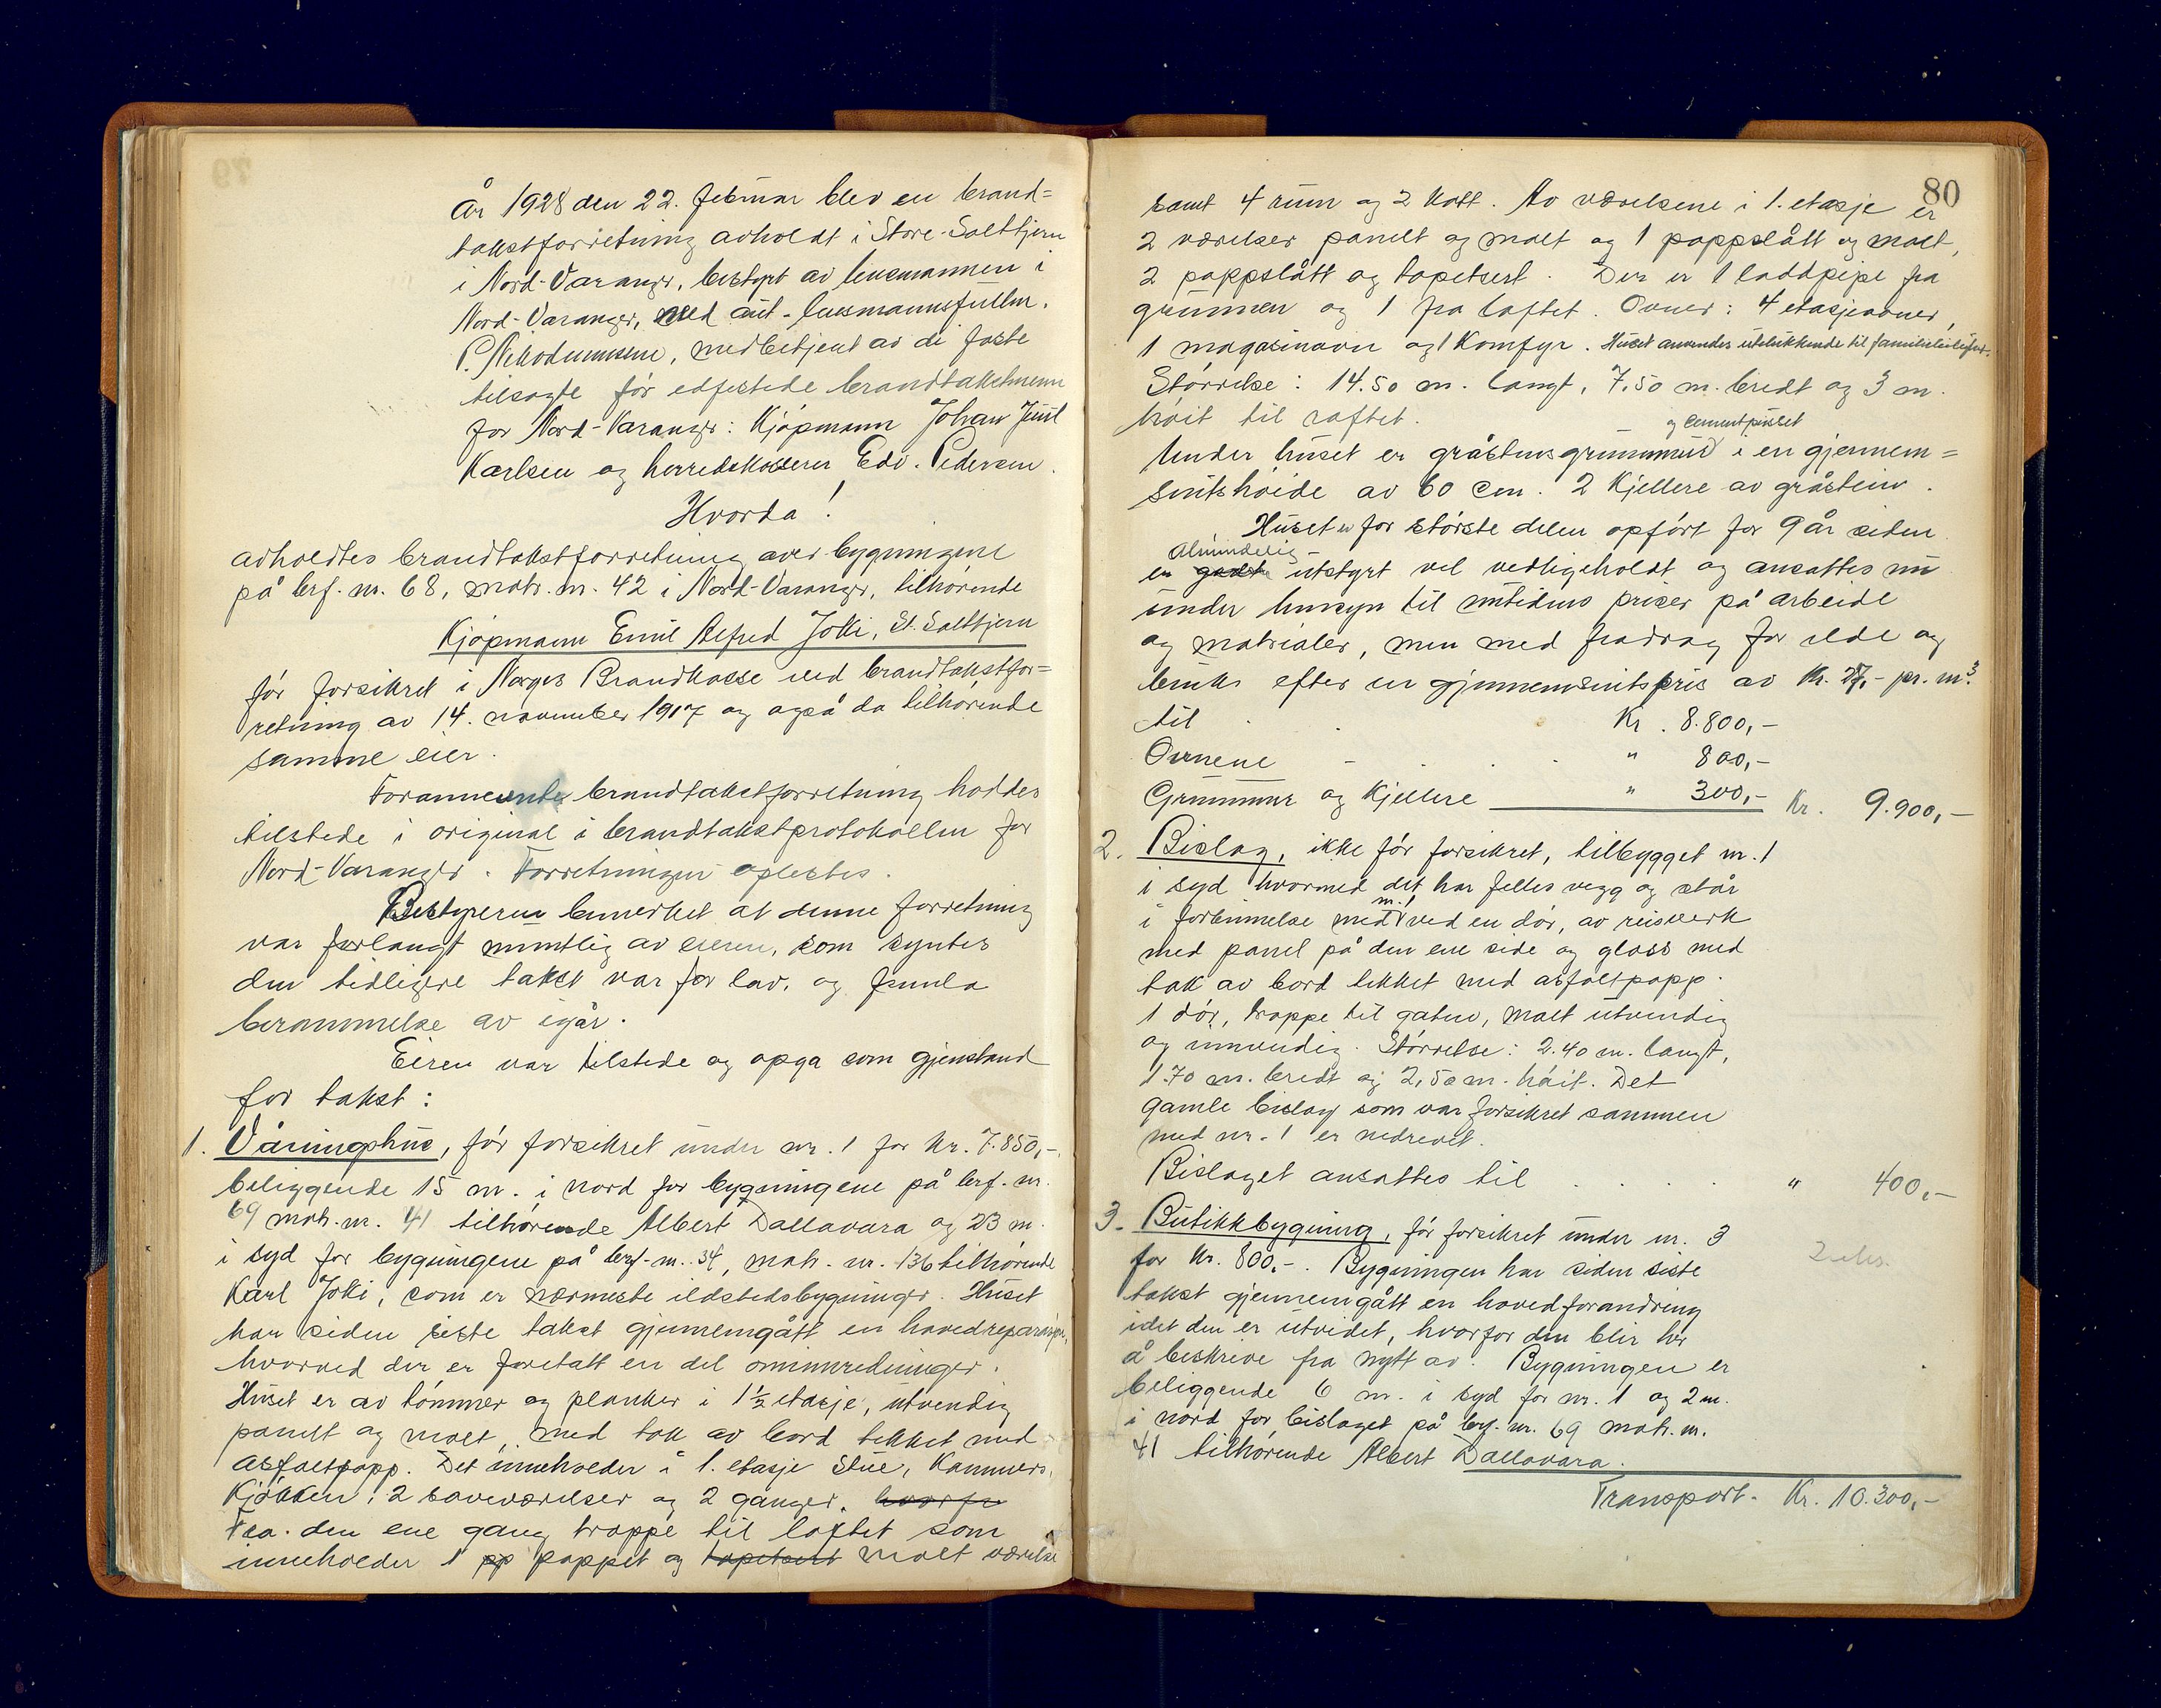 År 1928 den 22. februar blev en brand=
takstforretning avholdt i Store-Salttjern
i Nord-Varanger, bestyrt av lensmannen i
Nord-Varanger, ved aut. lensmannsfullm.
P. Nikodemusen, medbetjent av de faste
tilsagte før edfestede brandtakstmenn
for Nord-Varanger: Kjøpmann Johan Juul
Karlsen og herredskasserer Edv. Pedersen.
Hvorda!
avholdtes brandtakstforretning over bygningene
på brf. nr. 68, matr. nr. 42 i Nord-Varanger, tilhørende
Kjøpmann Emil Alfred Jokki, St. Salttjern
før forsikret i Norges Brandkasse ved brandtakstfor=
retning av 14. november 1917 og også da tilhørende
samme eier.
Forannevnte brandtakstforretning haddes
tilstede i original i brandtakstprotokollen for
Nord-Varanger. Forretningen oplestes.
Bestyreren bemerket at denne forretning
var forlangt muntlig av eieren, som syntes
den tidligere takst var for lav, og framla
berammelse av igår.
Eieren var tilstede og opga som gjenstand
for takst:
1. Våningshus, før forsikret under nr. 1 for kr. 7.850,-
beliggende 15 m. i nord for bygningene på brf. nr.
69 matr. nr. 41 tilhørende Albert Dallavara og 23 m.
i syd for bygningene på brf. nr. 34, matr. nr. 136 tilhørende
Karl Jokki, som er nærmeste ildstedsbygninger. Huset
har siden siste takst gjennemgått en hovedreparasjon,
hvorved der er foretatt en del ominnredninger.
Huset er av tømmer og planker i 1½ etasje, utvendig
panelt og malt, med tak av bord tekket med
asfaltpapp. Det inneholder i 1. etasje Stue, Kammers,
Kjøkken, 2 soveværelser og 2 ganger. hvorfra
Fra den ene gang trappe til loftet som
inneholder 1 pp pappet og tapetsert malt værelse
80
samt 4 rum og 2 kott. Av værelsene i 1. etasje er
2 værelser panelt og malt og 1 pappslått og malt,
2 pappslått og tapetsert. Der er 1 laddpipe fra
grunnen og 1 fra loftet. Ovner: 4 etasjeovner,
1 magasinovn og 1 Komfyr. Huset anvendes utelukkende til familieleilighet.
Størrelse: 14.50 m. langt, 7,50 m. bredt og 3 m.
høit til raftet.
og cementpusset
Under huset er gråstensgrunnmur i en gjennem=
snitshøide av 60 cm. 2 Kjellere av gråstein.
Huset er for største delen opført for 9 år siden
Almindelig
er godt utstyrt vel vedlikeholdt og ansattes nu
under hensyn til nutidens priser på arbeide
og materialer, men med fradrag for elde og
bruk efter en gjennemsnitspris av kr. 27,- pr. m³.
til . . Kr. 8.800,-
Ovnene - . . . " 800,-
Grunnmur og Kjellere " 300,- Kr. 9.900,-
2. Bislag, ikke før forsikret, tilbygget nr. 1
i syd hvormed det har felles vegg og står
i forbinnelse med nr. 1 ved en dør, av reisverk
med panel på den ene side og glass med
tak av bord tekket med asfaltpapp.
1 dør, trappe til gaten, malt utvendig
og innvendig. Størrelse: 2.40 m. langt,
1.70 m. bredt og 2,50 m. høit. Det
gamle bislag som var forsikret sammen
med nr. 1 er nedrevet.
Bislaget ansattes til . . . . " 400,-
3. Butikkbygning, før forsikret under nr. 3
for kr. 800,-. Bygningen har siden siste
takst gjennemgått en hovedforandring
idet den er utvidet, hvorfor den blir her
å beskrive fra nytt av. Bygningen er
beliggende 6 m. i syd for nr. 1 og 2 m.
i nord for bislaget på brf. nr. 69 matr. nr.
41 tilhørende Albert Dallavara.
Transport. Kr. 10.300,-